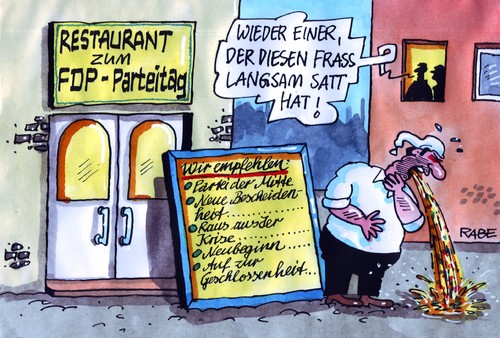 RESTAURANT
ZUM
FDP-Parteitag
WIEDER EINER,
DER DIESEN FRASS
LANGSAM SATT
HAT!
Wir empfehlen:
Partei der Mitte
Neue Bescheiden-
heit..........
Raus aus der
Krise..........
Neubeginn....
Auf zur
Geschlossenheit...
RABE